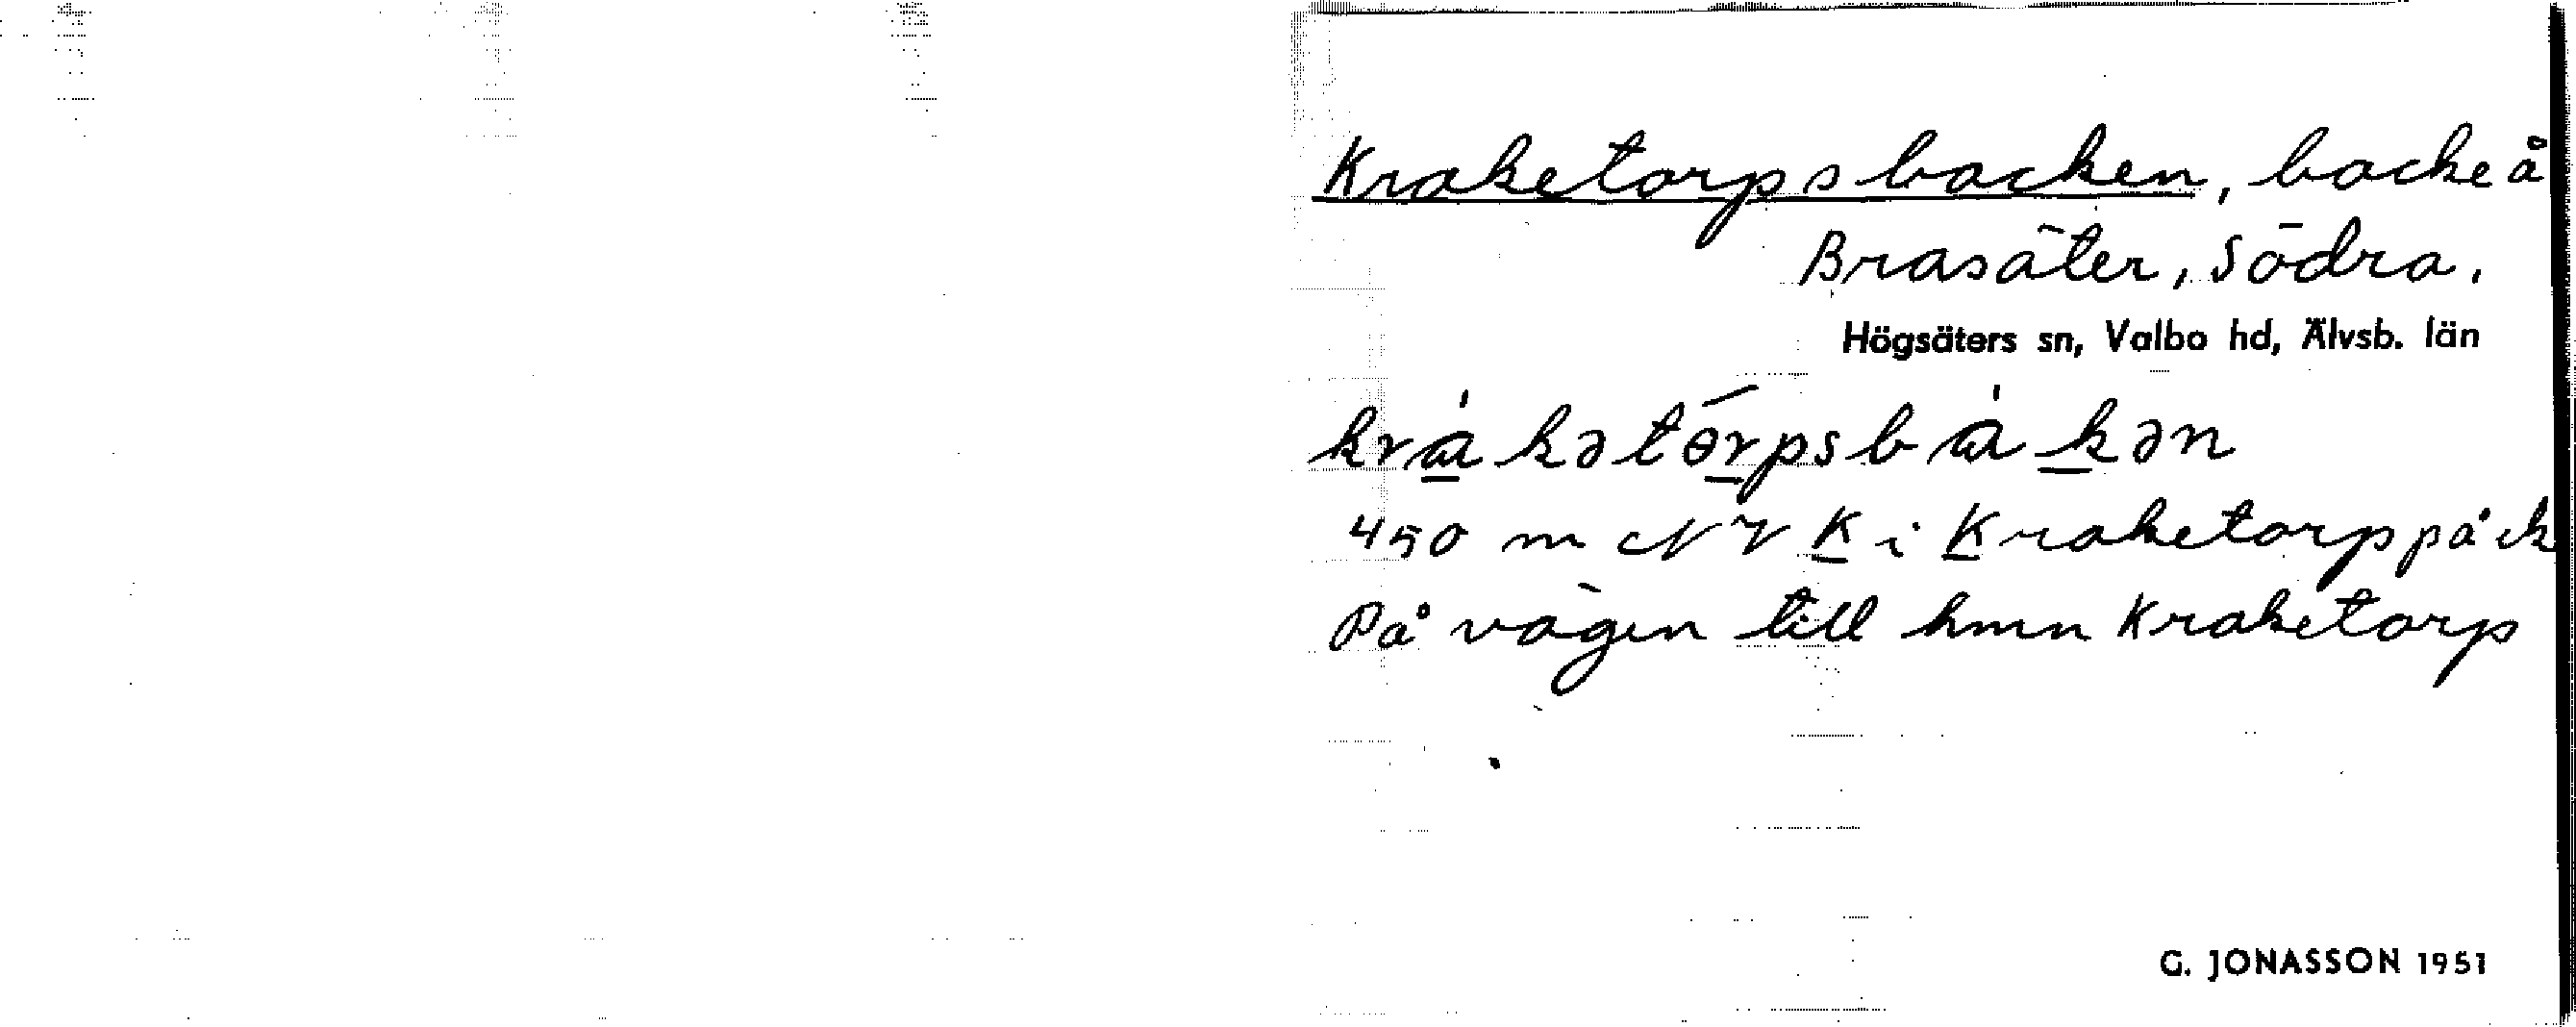 Kraketorpsbacken, backe å
Brasäter, Södra.
Högsäters sn, Valbo hd, Älvsb. län
450 m NV K i Kraketorp på ek
På vägen till hmn Kraketorp
G. JONASSON 1951